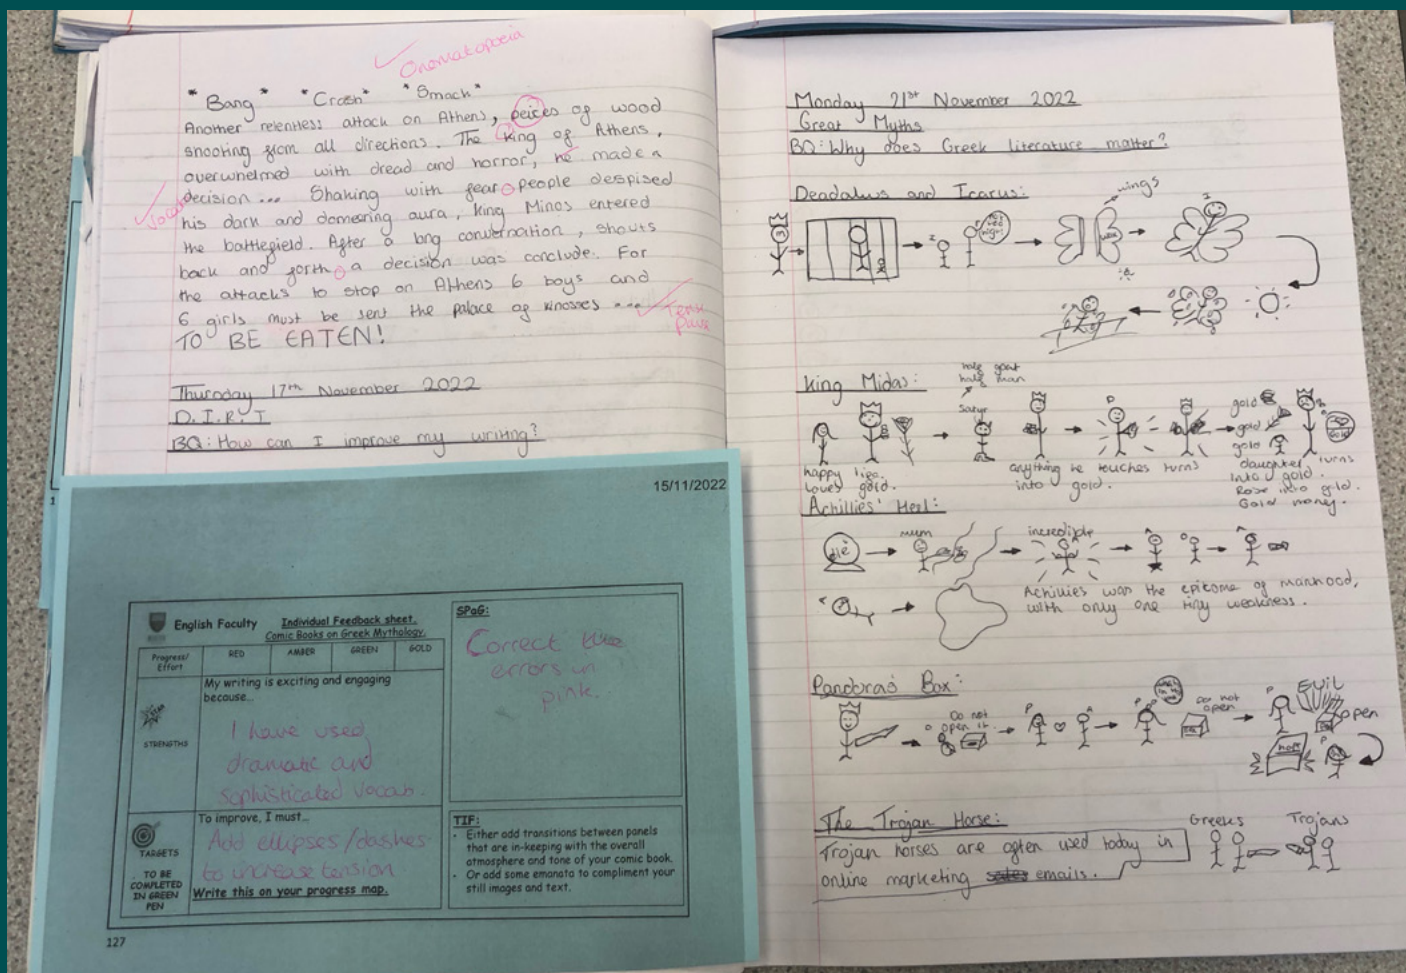 Onomatopoeia
*Bang* *Crash* *Smach*
Another relentless attack on Athens, peices of wood
shooting from all directions. The king of Athens,
overwhelmed with dread and horror, he made a
decision... Shaking with fear people despised
his dark and domeering aura, King Minos entered
the battlefield. After a long conversation, shouts
back and forth a decision was conclude. For
the attacks to stop on Athens 6 boys and
6 girls must be sent the palace of knosses ...
Tense
Pause
TO BE EATEN!
Thursday 17th November 2022
D.I.R.T
BQ: How can I improve my writing?
15/11/2022
English Faculty
Individual Feedback sheet.
Comic Books on Greek Mythology.
Progress/
Effort
RED AMBER GREEN GOLD
STRENGTHS
My writing is exciting and engaging
because...
I have used
dramatic and
sophisticated vocab.
TARGETS
TO BE
COMPLETED
IN GREEN
PEN
To improve, I must...
Add ellipses/dashes
to increase tension
Write this on your progress map.
SPaG:
Correct the
errors in
pink.
TIF:
- Either add transitions between panels
that are in-keeping with the overall
atmosphere and tone of your comic book.
- Or add some emanata to compliment your
still images and text.
127
Monday 21st November 2022
Great Myths
BQ: Why does Greek literature matter?
Deadalus and Icarus:
wings
wax
I
King Midas:
half goat
half man
satyr
happy life.
loves gold.
anything he touches turns
into gold.
gold
gold
gold
daughter turns
into gold.
Rose into gold.
Gold money.
Achillies' Heel:
mum
incredible
Achillies was the epitome of manhood,
with only one tiny weakness.
Pandora's Box:
Do not
open it.
Do not
open
EVIL
open
hope
The Trojan Horse:
Greeks Trojans
Trojan horses are often used today in
online marketing sales emails.